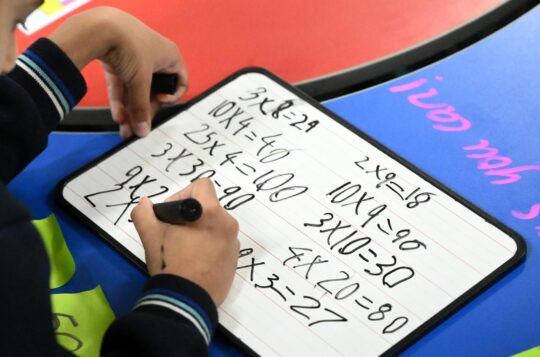 3x8=29
10X4=40
25X4=100
3X30=90
9X2
2X
2x9=18
10X9=90
3X10=30
4X20=80
9X3=27
you can!